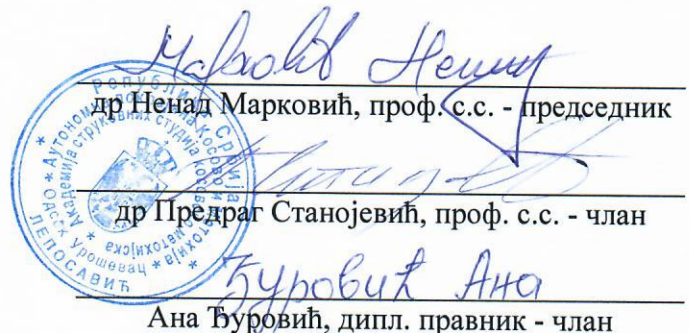 Марковић Ненад
др Ненад Марковић, проф. с.с. - председник
др Предраг Станојевић, проф. с.с. - члан
Ђуровић Ана
Ана Ђуровић, дипл. правник - члан
Република Србија
Аутономна покрајина Косово и Метохија
Академија струковних студија косовско метохијска
Одсек Урошевац
ЛЕПОСАВИЋ